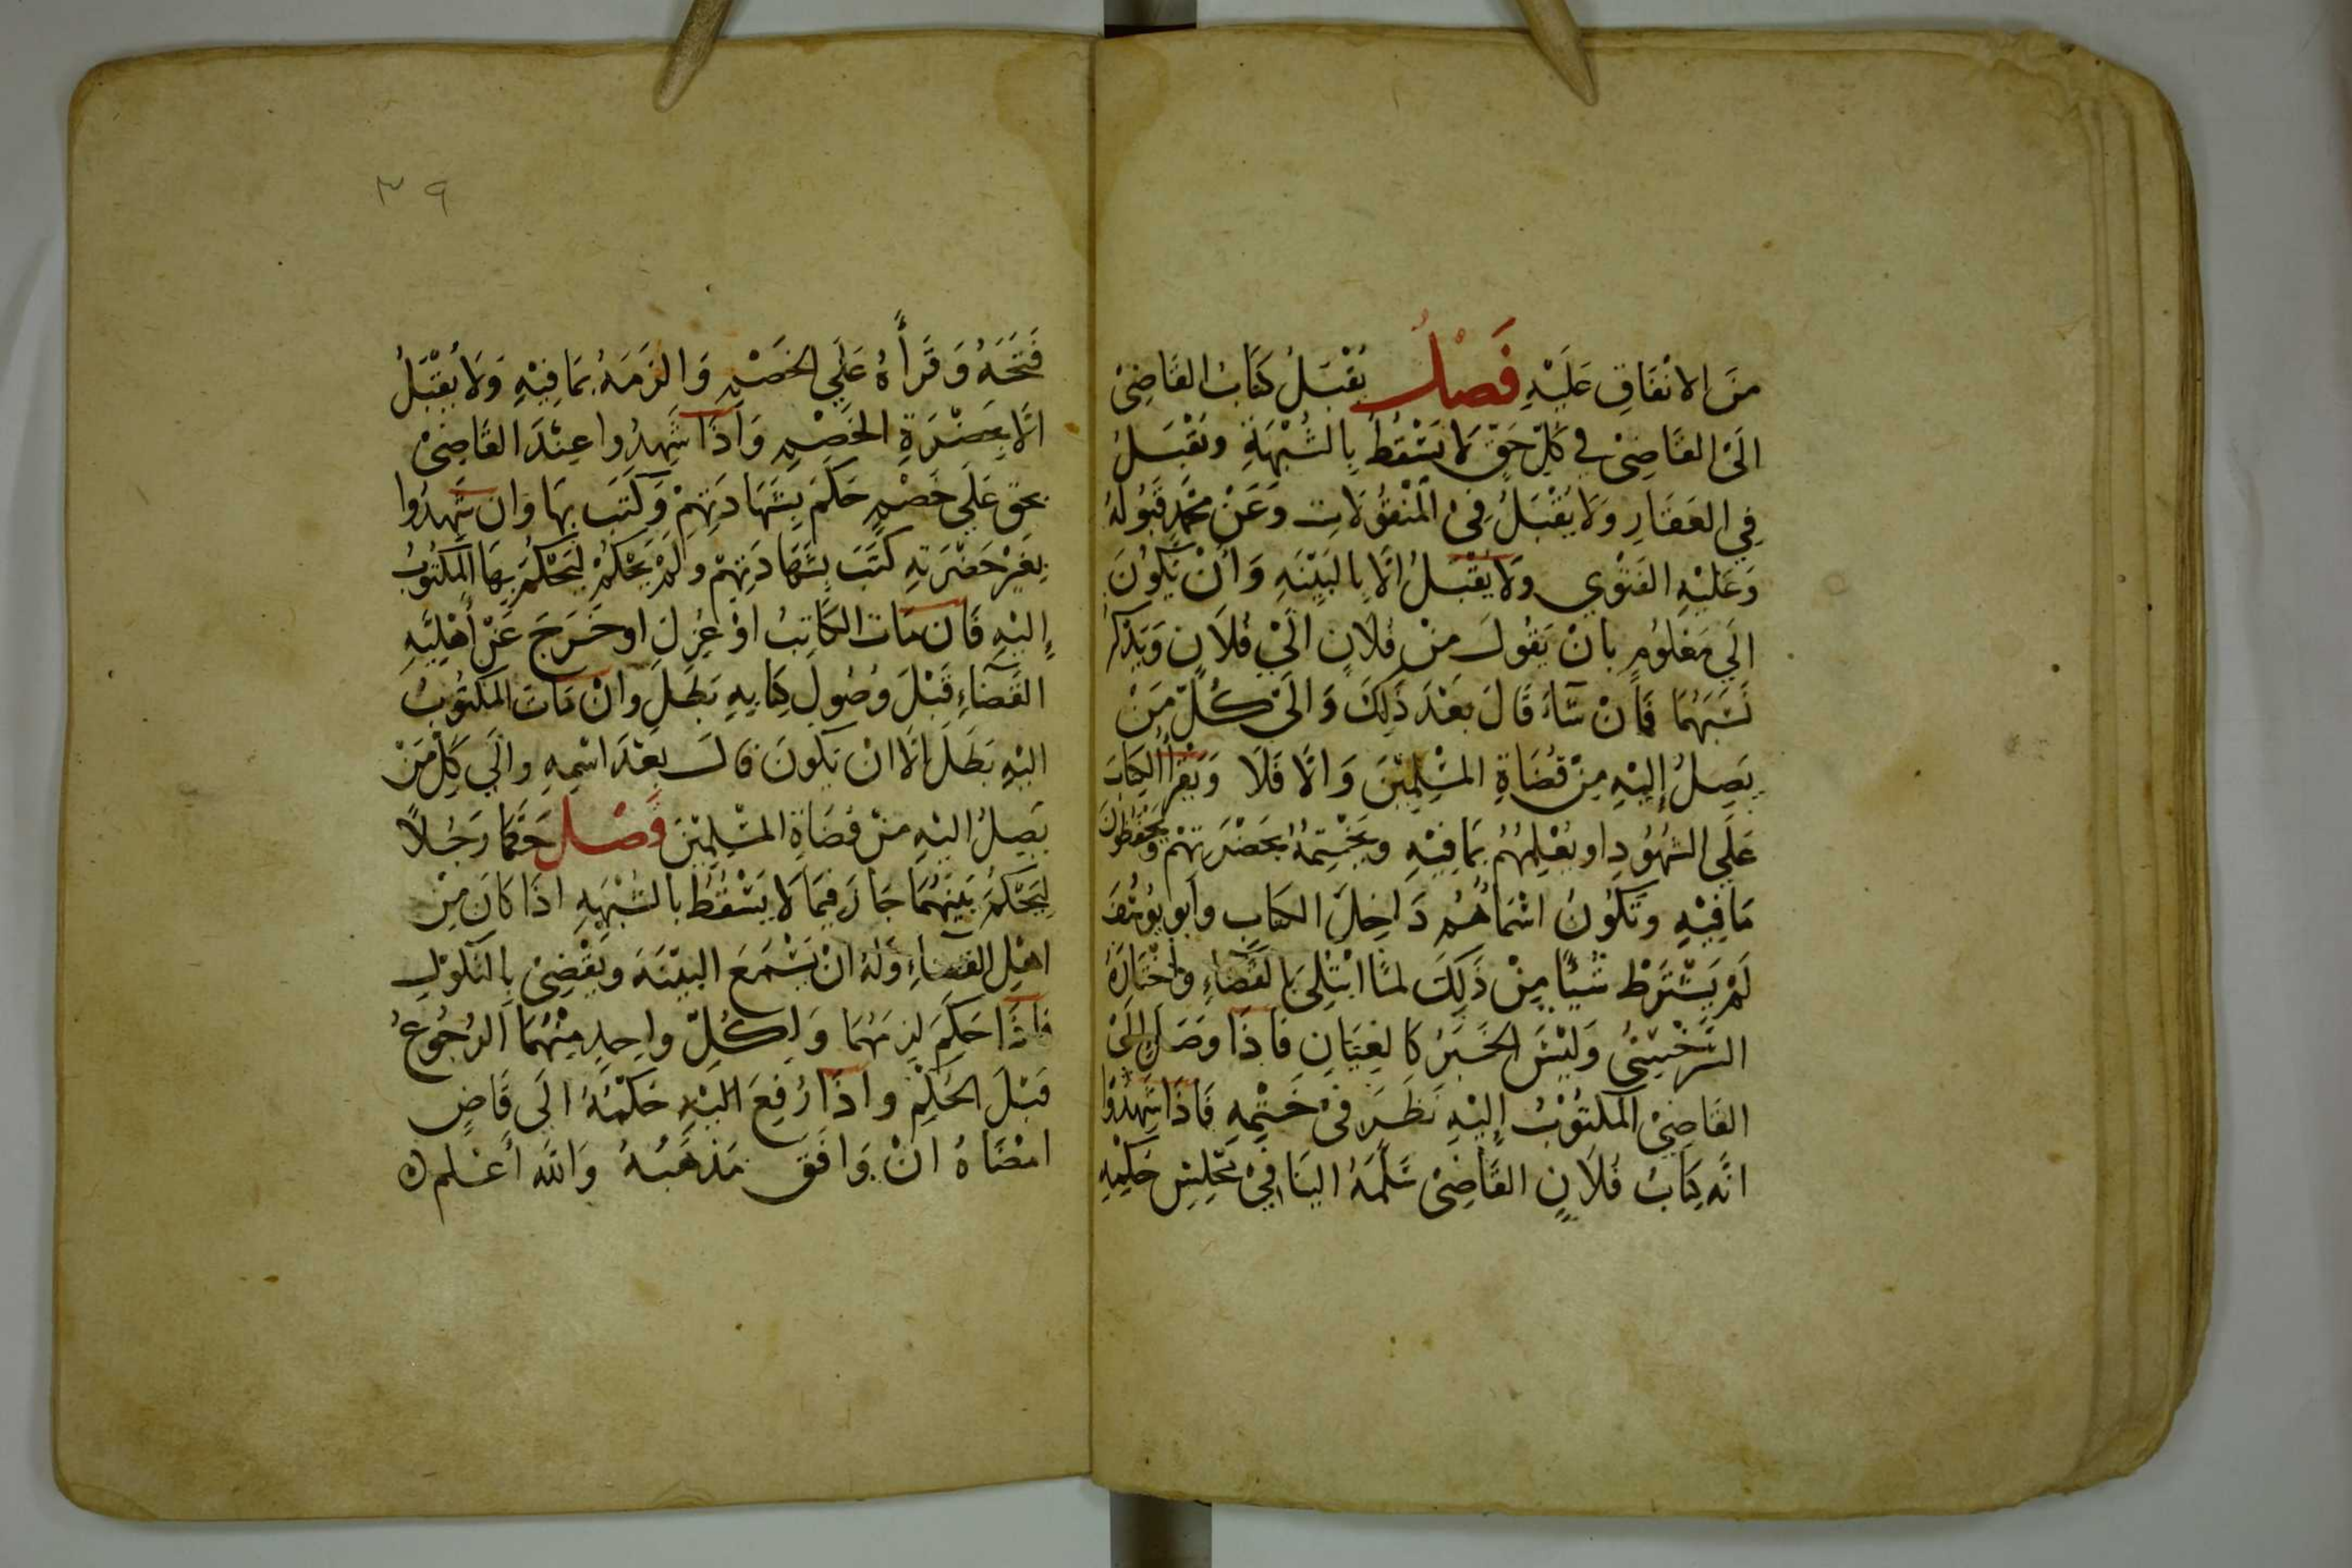 مِنَ الانْفَاقِ عَلَيْهِ فَصْلٌ يُقْبَلُ كِتَابُ القَاضِيْ
الَى القَاضِيْ في كُلِّ حَقٍّ لَا يَسْقُطُ بِالشُّبْهَةِ وَيُقْبَلُ
فِي العَقَارِ وَلَا يُقْبَلُ فِيْ الْمَنْقُوْلَاتِ وَعَنْ مُحَمَّدٍ قَبُوْلُهُ
وَعَلَيْهِ الفَتْوٰي وَلَا يُقْبَلُ الَّا بِالبَيِّنَهِ وَأنْ يَكُوْنَ
الَي مَعْلُوْمٍ بِانْ يَقُولَ مِنْ فُلَانٍ الَيْ فُلَانٍ وَيَذْكُرُ
نَسَبَهُمَا فَانْ شَاءَ قَالَ بَعْدَ ذَلِكَ وَالَيْ كُلِّ مَنْ
يَصِلُ إِلَيْهِ مِنْ قُضَاةِ المُسْلِمِيْنَ وَالَّا فَلَا وَيَقْرَأُ الكِتَابَ
عَلَي الشُّهُوْدِ او يُعْلِمُهُمْ بِمَا فِيْهِ وَيَخْتِمُهُ بِحَضْرَتِهِمْ وَيَحْفَظُوْنَ
مَا فِيْهِ وَتَكُوْنُ اسْمَاؤُهُمْ دَاخِلَ الكِتَابِ وأبو يُوْسُفَ
لَمْ يَشْتَرِطْ شَيْئًا مِنْ ذَلِكَ لمَّا ابْتُلِيَ بِالقَضَاءِ وَاخْتَارَهُ
السَّرَخْسِيُّ وَلَيْسَ الخَبَرُ كَالعِيَانِ فَاذَا وَصَلَ إِلَيْ
القَاضِيْ المَكْتُوْبُ إِلَيْهِ نَظَرَ فِيْ خَتْمِهِ فَاذَا شَهِدُوْا
انَّه كِتَابُ فُلَانٍ القَاضِيْ سَلَّمَهُ الينَا فِيْ مَجْلِسِ حُكْمِهِ
٣٩
فَتَحَهُ وَقَرَأَهُ عَلَي الخَصْمِ وَالزَمَهُ بِمَا فِيْهِ وَلَا يُقْبَلُ
الَّا بِحَضْرَةِ الخَصْمِ وَاذَا شَهِدُوا عِنْدَ القَاضِيْ
بِحَقٍّ عَلَي خَصْمٍ حَكَمَ بِشَهَادَتِهِمْ وَكَتَبَ بِهَا وَانْ شَهِدُوا
بِغَيْرِ حَضْرَتِهِ كَتَبَ بِشَهَادَتِهِمْ وَلَمْ يَحْكُمْ لِيَحْكُمَ بِهَا المَكْتُوبُ
إِلَيْهِ فَانْ مَاتَ الكَاتِبُ اوْ عُزِلَ او خَرَجَ عَنْ أهْلِيَّهِ
القَضَاءِ قَبْلَ وُصُولِ كِتَابِهِ بَطَلَ وانْ مَاتَ المَكْتُوْبُ
اليْهِ بَطَلَ الَّا انْ يَكُونَ قالَ بَعْدَ اسْمِهِ والَي كُلِّ مَنْ
يَصِلُ اليْهِ مِنْ قُضَاةِ المُسْلِمِيْنَ فَصْل حَكَّمَا رَجُلًا
لِيَحْكُمَ بَيْنَهُمَا جَازَ فِيْمَا لَا يَسْقُطُ بالشُّبْهَهِ اذَا كَانَ مِنْ
اهْلِ القَضَاءِ وَلَهُ انْ يَسْمَعَ البَيِّنَهَ وَيَقْضِيْ بِالنُّكُوْلِ
فاذَا حَكَمَ لَزِمَهُمَا وَلِكُلِّ واحِدٍ مِنْهُمَا الرُّجُوعُ
قَبْلَ الحُكْمِ واذَا رُفِعَ اليْهِ حُكْمُهُ الَى قَاضٍ
امْضَاهُ انْ وَافَقَ مَذْهَبَهُ وَاللهُ أعْلم